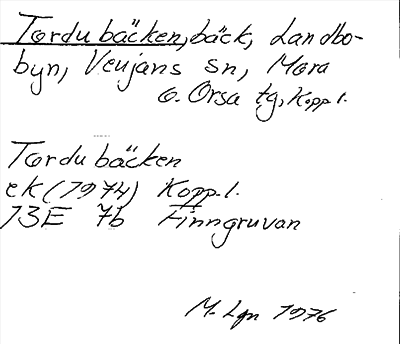 Tordubäcken, bäck, Landbo-
byn, Venjans sn, Mora
o. Orsa tg, Kopp. l.
Tordubäcken
ek (1974) Kopp. l.
13E 7b Finngruvan
M. Lgn 1976